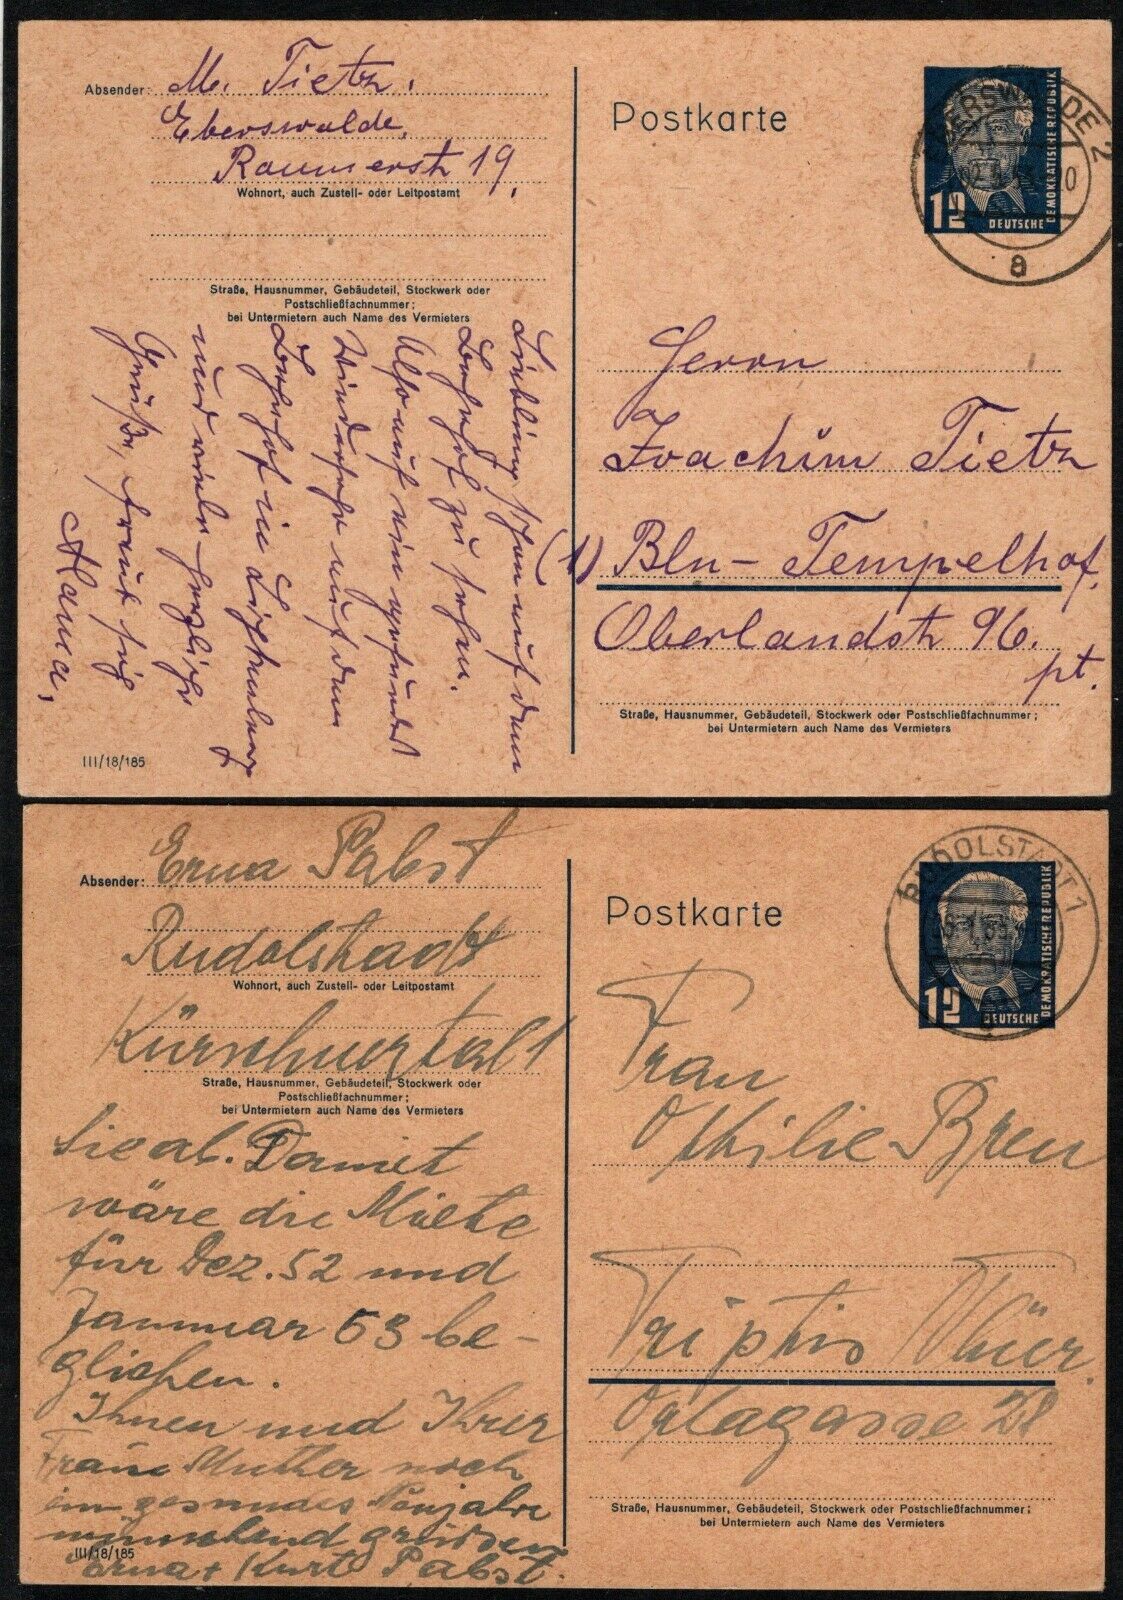 Absender: M. Tietz.
Eberswalde,
Raumerstr 19,
Wohnort, auch Zustell- oder Leitpostamt
Straße, Hausnummer, Gebäudeteil, Stockwerk oder
Postschließfachnummer;
bei Untermietern auch Name des Vermieters
Liebling schon auf dem
Bahnhof zu sehen.
Also auf ein gesundes
Wiedersehn auf dem
Bahnhof in Lichtenberg
und viele herzliche
Grüße, freut sich
Mama,
III/18/185
Postkarte
EBERSWALDE 2
a
12
DEUTSCHE
DEMOKRATISCHE REPUBLIK
Herrn
Joachim Tietz
(1) Bln - Tempelhof.
Oberlandstr 96.
pt.
Straße, Hausnummer, Gebäudeteil, Stockwerk oder Postschließfachnummer;
bei Untermietern auch Name des Vermieters
Absender: Erna Pabst
Rudolstadt
Wohnort, auch Zustell- oder Leitpostamt
Straße, Hausnummer, Gebäudeteil, Stockwerk oder
Postschließfachnummer;
bei Untermietern auch Name des Vermieters
Sie ab. Damit
wäre die Miete
für Dez. 52 und
Januar 53 be-
glichen.
Ihnen und Ihrer
Frau Mutter noch
ein gesundes Neujahr
wünschend grüßen
Erna + Kurt Pabst.
III/18/185
Postkarte
RUDOLSTADT 1
12
DEUTSCHE
DEMOKRATISCHE REPUBLIK
Frau
Othilie Breu
Triptis Thür.
Oplagasse 28
Straße, Hausnummer, Gebäudeteil, Stockwerk oder Postschließfachnummer;
bei Untermietern auch Name des Vermieters